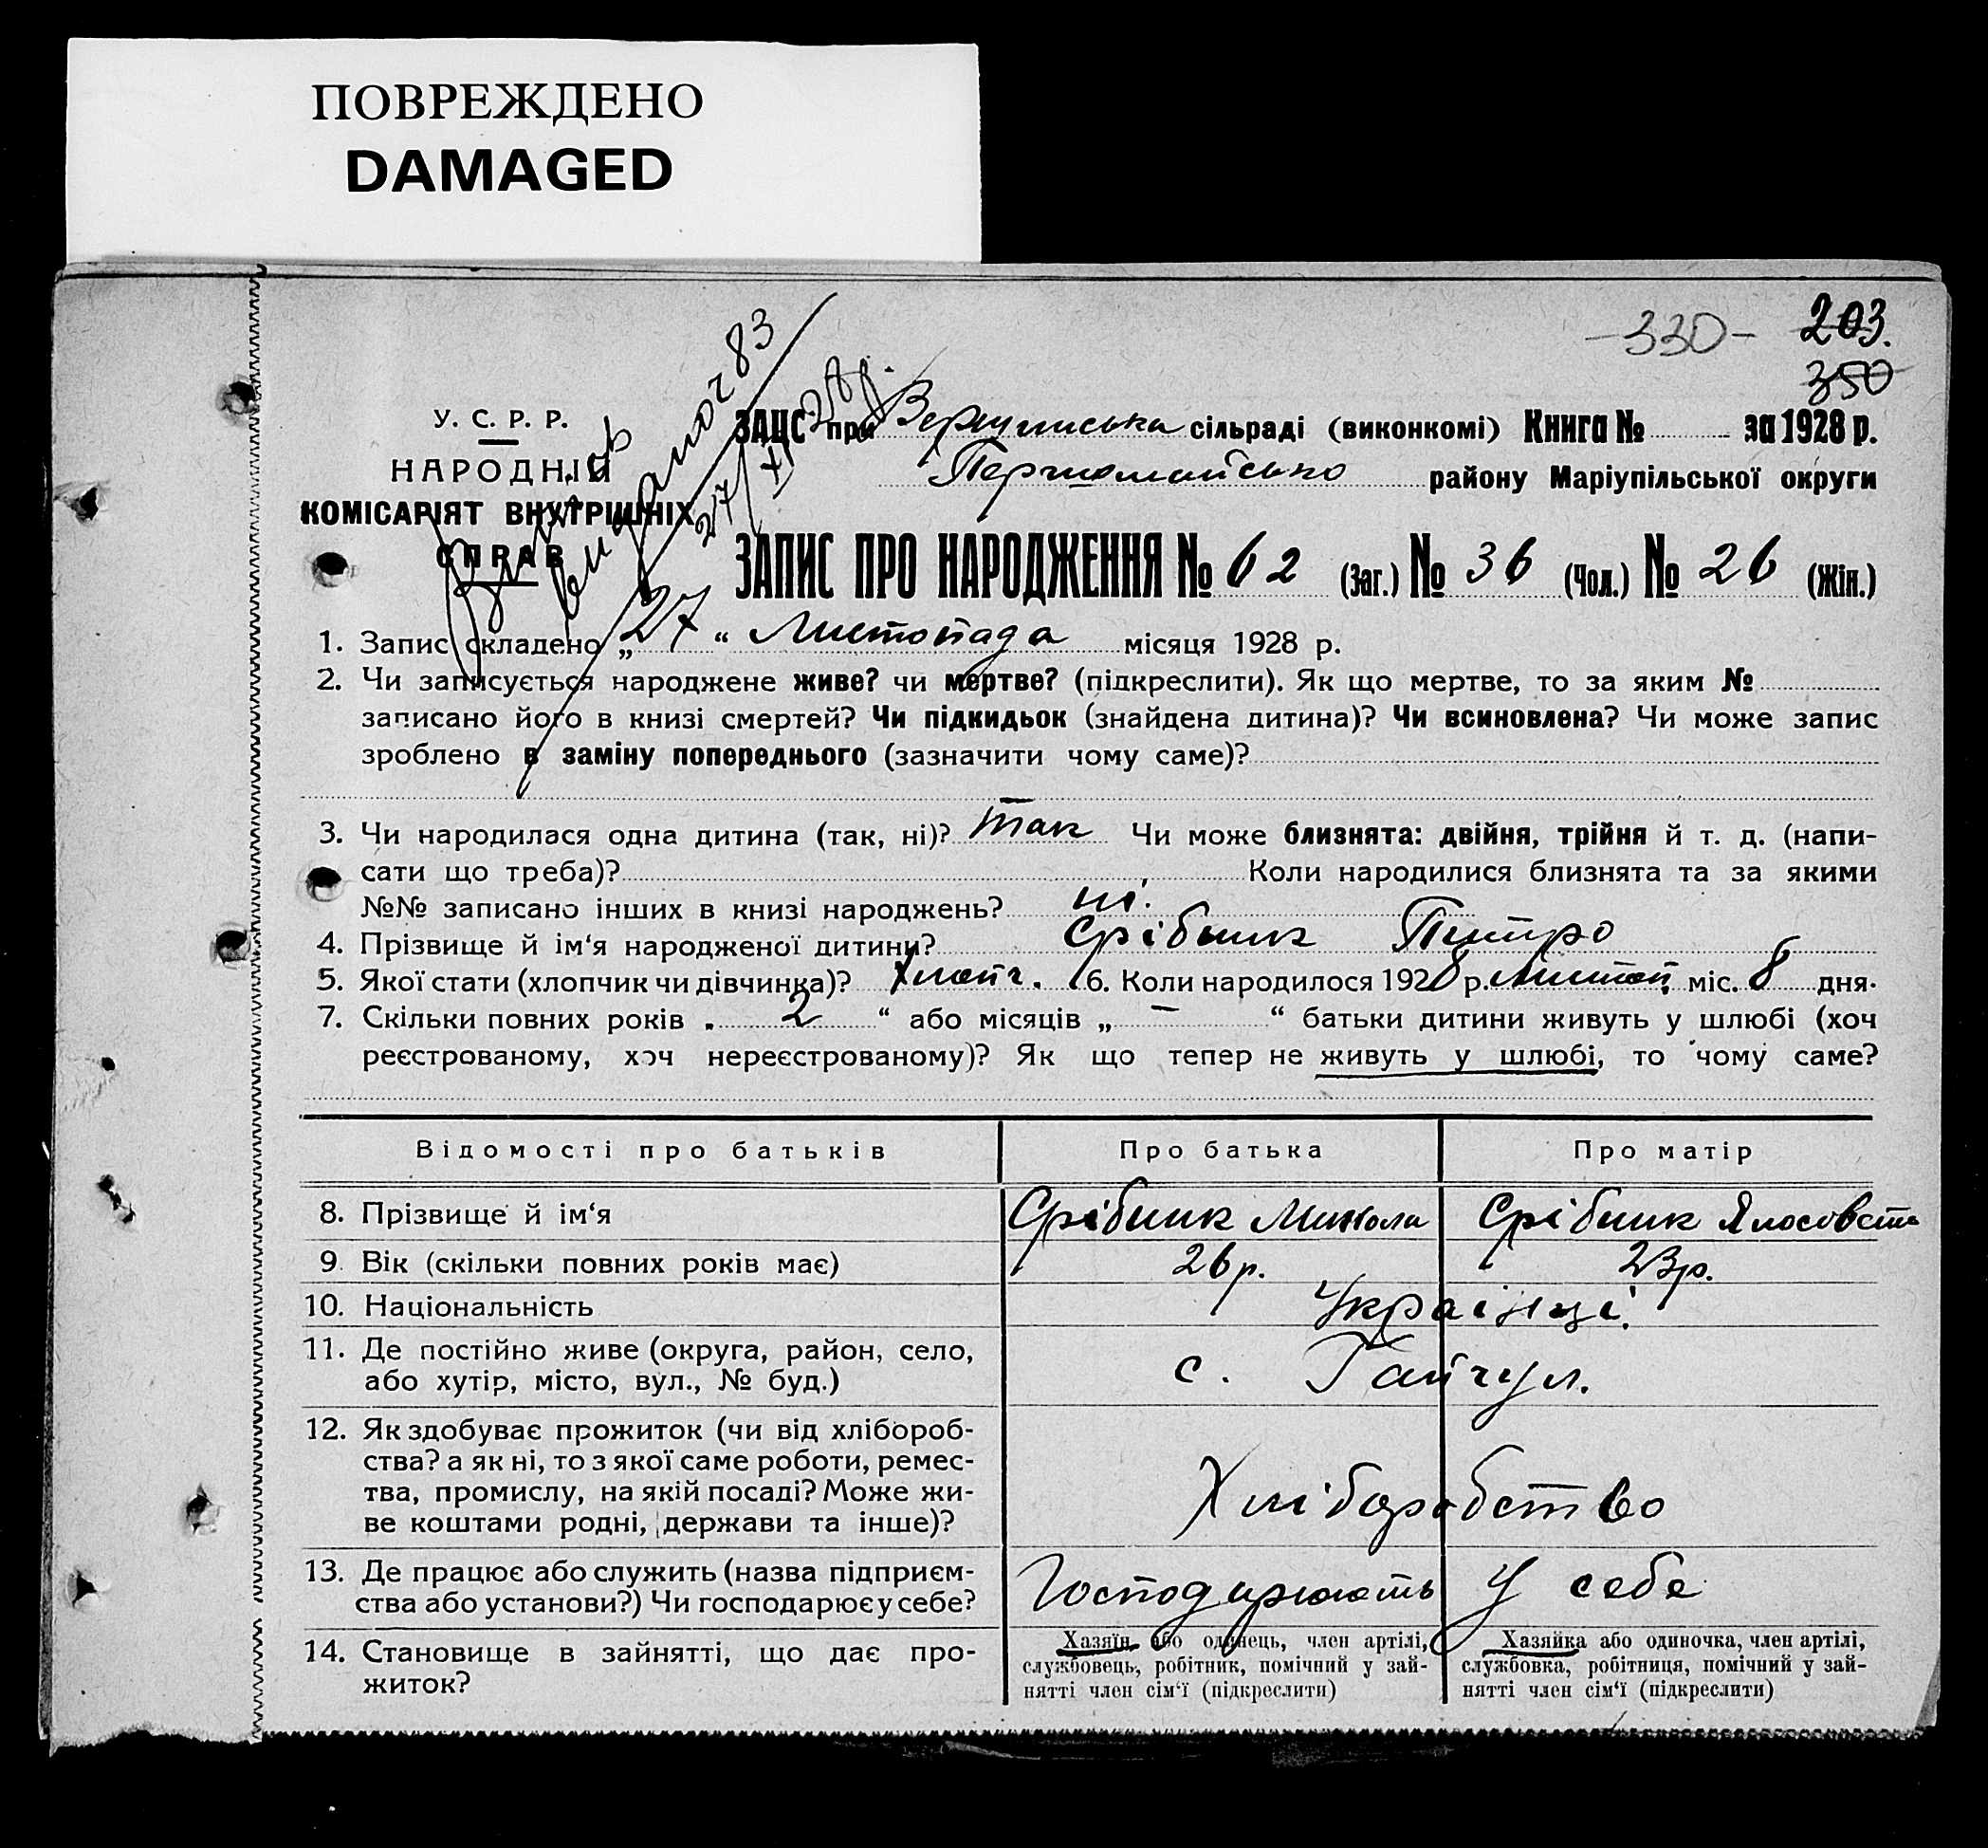 ПОВРЕЖДЕНО
DAMAGED
-330- 203.
350
У. С. Р. Р.
НАРОДНІЙ
КОМІСАРІЯТ ВНУТРІШНІХ
СПРАВ
83
27/XI 28р.
ЗАЦС при сільраді (виконкомі) Книга № за 1928 р.
Першомайсько району Маріупільської округи
ЗАПИС ПРО НАРОДЖЕННЯ № 62 (Заг.) № 36 (Чол.) № 26 (Жін.)
1. Запис складено „ 27 “ Листопада місяця 1928 р.
2. Чи записується народжене живе? чи мертве? (підкреслити). Як що мертве, то за яким №
записано його в книзі смертей? Чи підкидьок (знайдена дитина)? Чи всиновлена? Чи може запис
зроблено в заміну попереднього (зазначити чому саме)?
3. Чи народилася одна дитина (так, ні)? Так Чи може близнята: двійня, трійня й т. д. (напи-
сати що треба)? Коли народилися близнята та за якими
№№ записано інших в книзі народжень? ні.
4. Прізвище й ім‘я народженої дитини? Срібник Питро
5. Якої стати (хлопчик чи дівчинка)? Хлопч. 6. Коли народилося 1928 р. Листоп. міс. 8 дня.
7. Скільки повних років „ 2 “ або місяців „ — “ батьки дитини живуть у шлюбі (хоч
реєстрованому, хоч нереєстрованому)? Як що тепер не живуть у шлюбі, то чому саме?
Відомості про батьків Про батька Про матір
8. Прізвище й ім‘я Срібник Микола Срібник
9. Вік (скільки повних років має) 26 р. 23 р.
10. Національність Українці.
11. Де постійно живе (округа, район, село,
або хутір, місто, вул., № буд.) с. Гайчул.
12. Як здобуває прожиток (чи від хлібороб-
ства? а як ні, то з якої саме роботи, ремес-
тва, промислу, на якій посаді? Може жи-
ве коштами родні, держави та інше)? Хліборобство
13. Де працює або служить (назва підприєм-
ства або установи?) Чи господарює у себе? Господарюють у себе
14. Становище в зайнятті, що дає про-
житок?
Хазяїн або одинець, член артілі,
службовець, робітник, помічний у зай-
нятті член сім‘ї (підкреслити)
Хазяйка або одиночка, член артілі,
службовка, робітниця, помічний у зай-
нятті член сім‘ї (підкреслити)